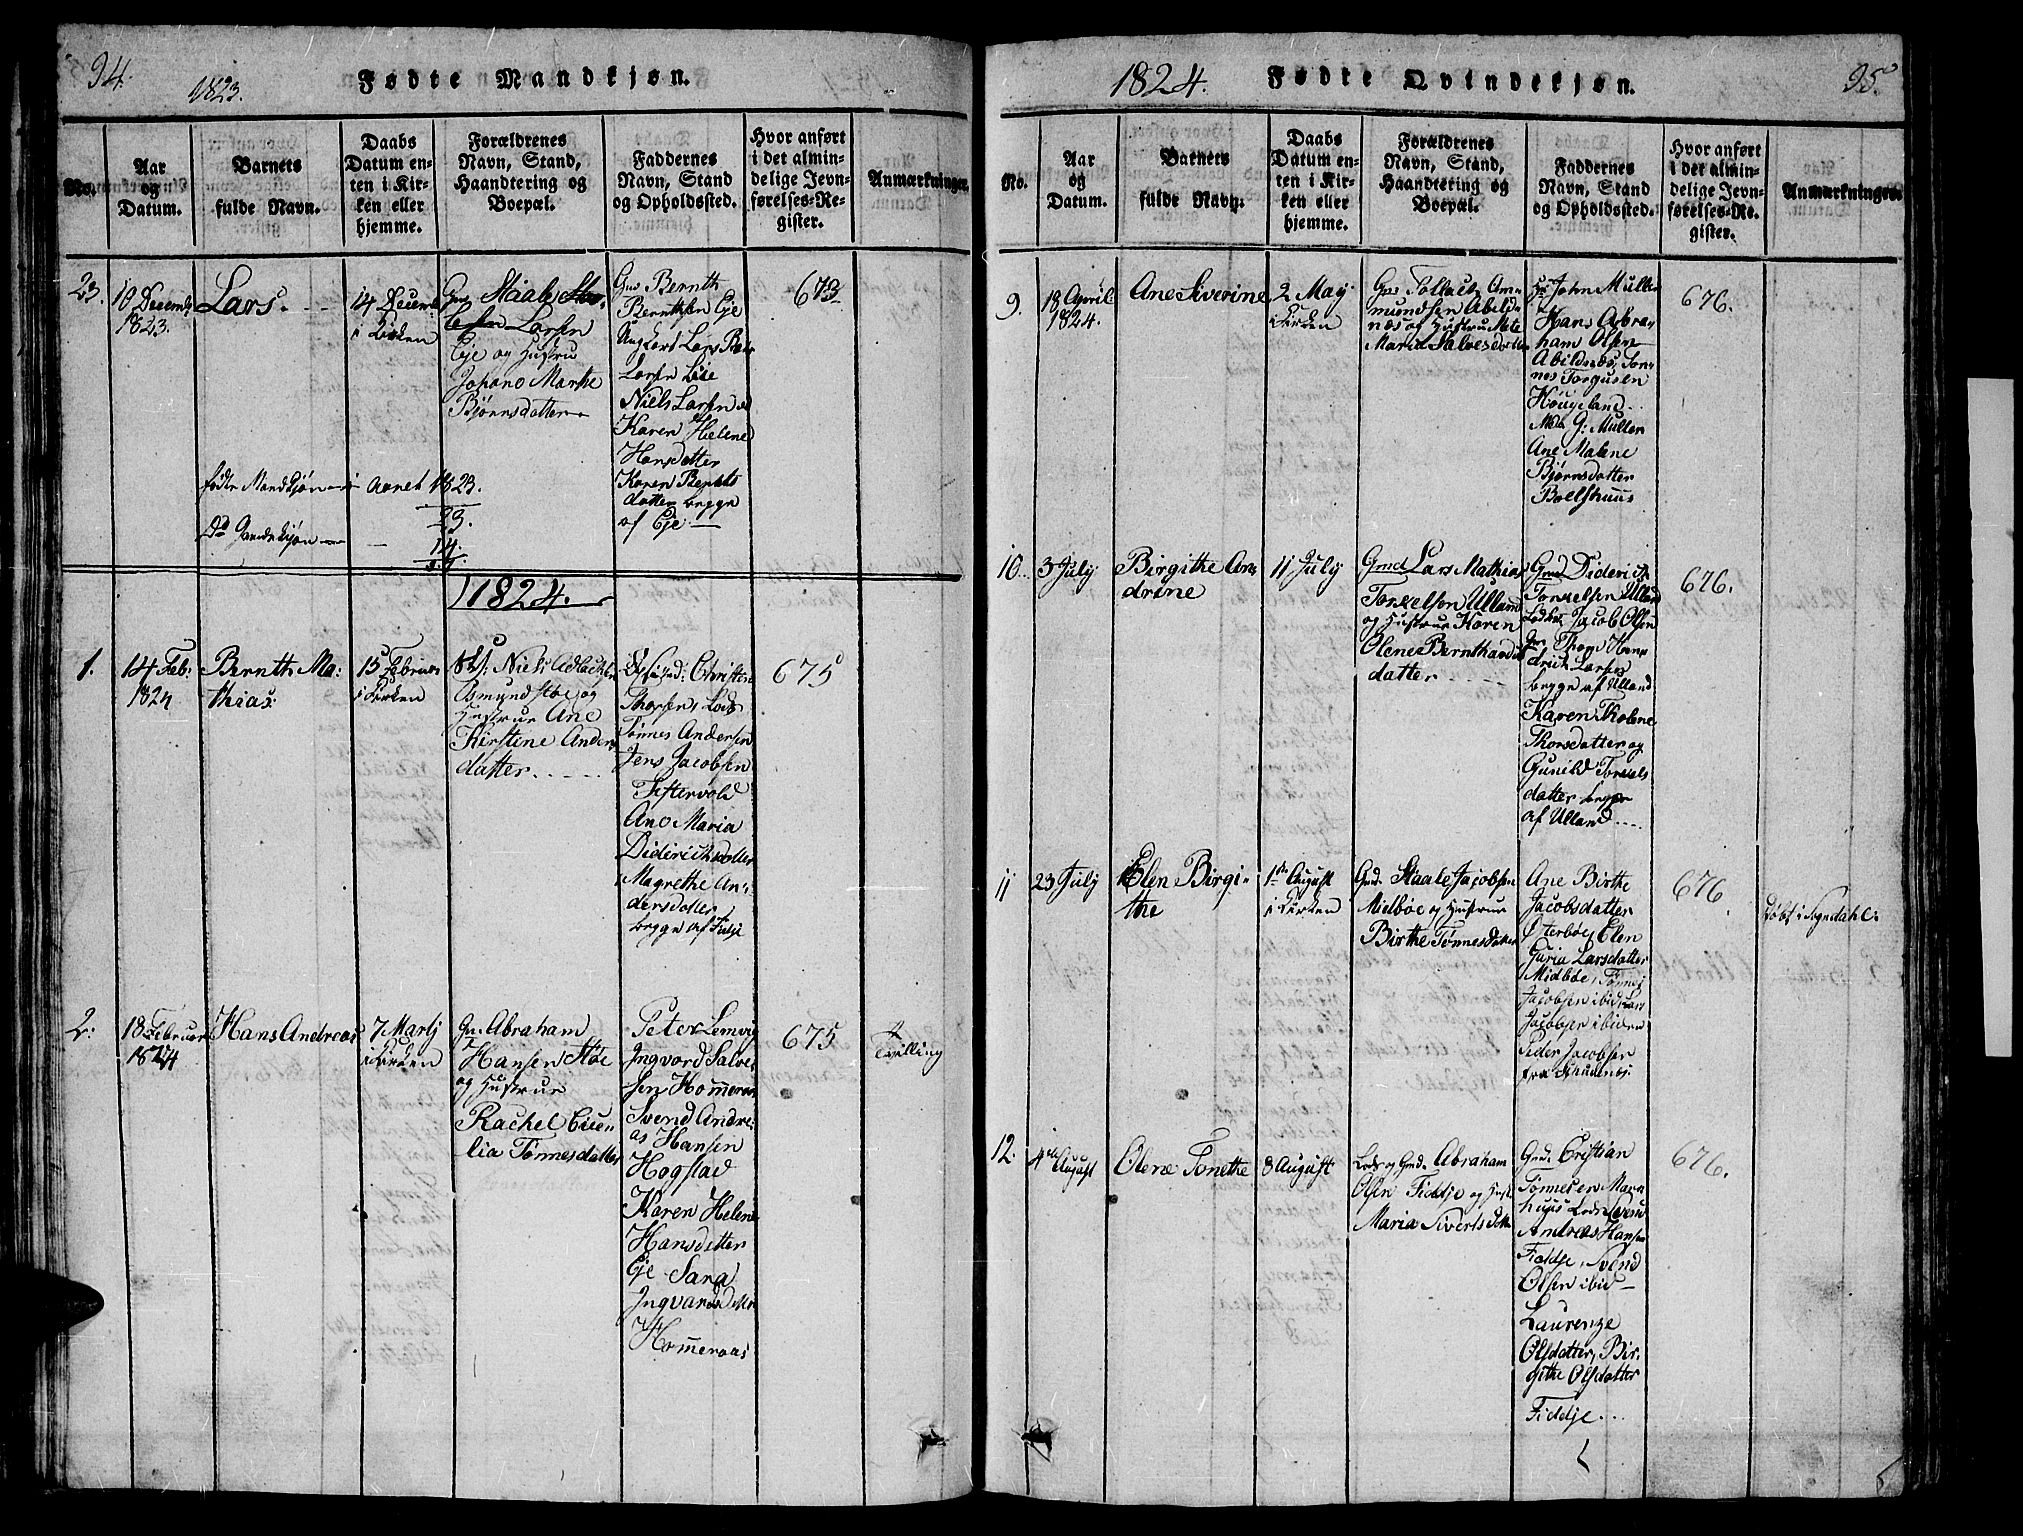 94.
1823.
Fødte Mandkjøn.
No.
Aar
og
Datum.
Barnets
fulde Navn.
Daabs
Datum en-
ten i Kir-
ken eller
hjemme.
Forældrenes
Navn, Stand,
Haandtering og
Boepæl.
Faddernes
Navn, Stand
og Opholdssted.
Hvor anført
i det almin-
delige Jevn-
førelses-Re-
gister.
Anmærkninger.
23.
10 Decemb.
1823.
Lars.
14 Decemb
i Kirken
Staale
Larsen
Eje og Hustru
Johane Marthe
Bjørnsdatter
Gmd Bernth
Berntsen Eje
Ungkarl Lars
Larsen
Niels Larsen
Karen Helene
Hansdatter
Karen Bernts
datter begge
af Eje
673
fødte Mandkjøn i Aaret 1823.
23.
Do Qvindekjøn
14.
37.
1824.
1.
14 Feb:
1824
Bernth Ma:
thias:
15 Februar
i Kirken
Niels Adlachsen
Osmundstøe og
Hustrue Ane
Kirstine Anders
datter
Christen
Thorsen Lods
Tønnes Andersen
Jens Jacobsen
Festervold
Ane Maria
Diderichsdatter
Magrethe An:
dersdatter
begge af Fidje
675
2:
18 Februar
1824
Hans Andreas
7 Martj
i Kirken
Gm. Abraham
Hansen Støe
og Hustrue
Rachel Cice-
lia Tønnesdatter
Peter Lemvig
Ingvord Salve-
sen Homeraas
Svend Andre:
as Hansen
Hogstad
Karen Helene
Hansdatter
Eje Sara
Ingvards
Homeraas
675
Tvilling
1824.
Fødte Qvindekjøn.
95.
No.
Aar
og
Datum.
Barnets
fulde Navn.
Daabs
Datum en-
ten i Kir-
ken eller
hjemme.
Forældrenes
Navn, Stand,
Haandtering og
Boepæl.
Faddernes
Navn, Stand
og Opholdssted.
Hvor anført
i det almin-
delige Jevn-
førelses-Re-
gister.
Anmærkninger.
9.
18 April
1824.
Ane Siverine
2 May
i Kirken
Gm Tollach Am-
mundsen Abild-
næs og Hustrue Mete
Maria Salvesdatter
Hr John Muller
Hans Abra-
ham Olsen
Abildnæs, Tøn-
nes Torgusen
Høugeland
Md. G: Muller
Ane Malene
Bjørnsdatter
Boelshuus
676.
10.
3 July
Birgithe An-
drine
11 July
Gmd Lars Mathias
Torkelsen Ulland
og Hustrue Karen
Olene Bernthardts
datter
Gmd Diderich
Torkelsen Ulland
Jacob Olsen
Thor Hen-
drich Larsen
begge af Ulland
Karen Tholene
Thorsdatter og
Gunild Torkels
datter begge
af Ulland
676.
11
23 July
Elen Birgi-
the
1ste August
i Kirken
Gmd. Staale Jacobsen
Mielbøe og Hustrue
Birthe Tønnesdatter
Ane Birthe
Jacobsdatter
Østerbøe, Elen
Guria Larsdatter
Midbøe, Tønnes
Jacobsen ibid, Lars
Jacobsen ibidem
Peder Jacobsen
fra
676.
Døbt i Sogndahl.
12.
4de August
Olene Tonethe
8 August
Lods og Gmd. Abraham
Olsen Fiddje og Hust.
Maria Sivertsdatter
Gmd. Cristian
Tønnesen Marn
huus Lods Svend
Andreas Hansen
Fiddje, Svend
Olsen ibid
Laurenze
Olsdatter, Bir-
githe Olsdatter
Fiddje
676.